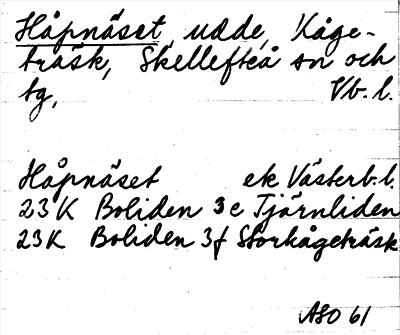 Håpnäset, udde, Kåge-
träsk, Skellefteå sn och
tg, Vb. l.
Håpnäset ek Västerb. l.
23K Boliden 3e Tjärnliden
23K Boliden 3f Storkågeträsk
ASO 61